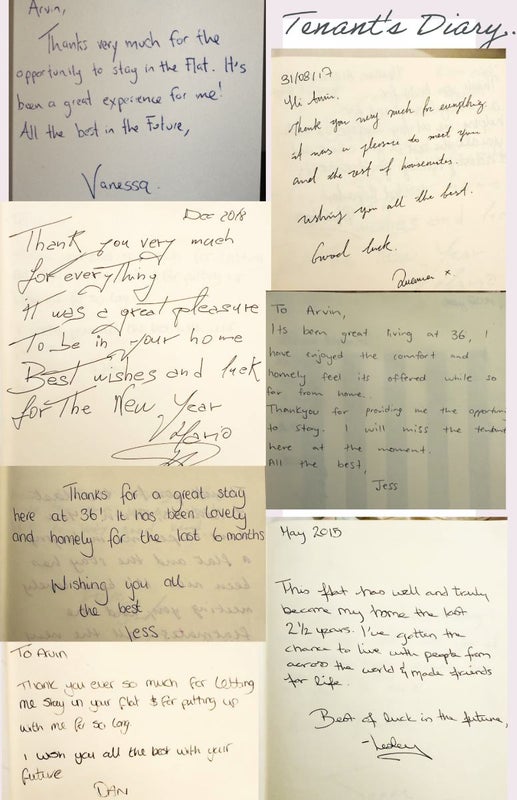 Tenant's Diary.
Arvin,
Thanks very much for the
opportunity to stay in the Flat. It's
been a great experience for me!
All the best in the Future,
Vanessa.
31/08/17
Hi Arvin.
Thank you very much for everything.
it was a pleasure to meet you
and the rest of housemates.
wishing you all the best.
Good luck.
x
Dec 2018
Thank you very much
for everything
it was a great pleasure
To be in your home
Best wishes and luck
for The New Year
Mario
To Arvin,
Its been great living at 36, I
have enjoyed the comfort and
homely feel its offered while so
far from home.
Thankyou for providing me the opportun
to stay. I will miss the
here at the moment.
All the best,
Jess
Thanks for a great stay
here at 36! It has been lovely
and homely for the last 6 months
Wishing you all
the best
Jess
May 2015
This flat has well and truly
become my home the last
2 1/2 years. I've gotten the
chance to live with people from
across the world & made friends
for life.
Best of luck in the future,
-Lesley
To Arvin
Thank you ever so much for letting
me stay in your flat & for putting up
with me for so long
I wish you all the best with your
future
DAN